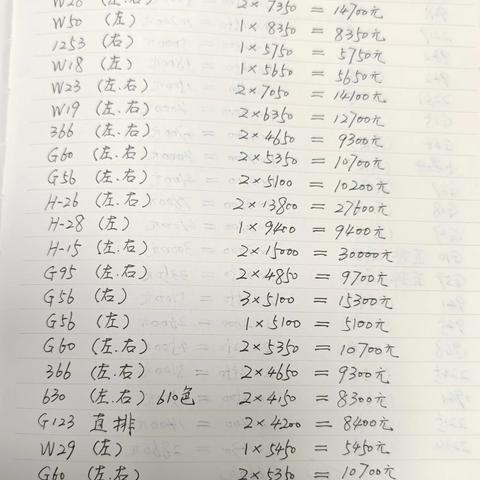 W26 (左.右) 2×7350 = 14700元
W50 (左) 1×8350 = 8350元
1253 (右) 1×5750 = 5750元
W18 (左) 1×5650 = 5650元
W23 (左.右) 2×7050 = 14100元
W19 (左.右) 2×6350 = 12700元
366 (左.右) 2×4650 = 9300元
G60 (左.右) 2×5350 = 10700元
G56 (左.右) 2×5100 = 10200元
H-26 (左.右) 2×13800 = 27600元
H-28 (左) 1×9400 = 9400元
H-15 (左.右) 2×15000 = 30000元
G95 (左.右) 2×4850 = 9700元
G56 (右) 3×5100 = 15300元
G56 (左) 1×5100 = 5100元
G60 (左.右) 2×5350 = 10700元
366 (左.右) 2×4650 = 9300元
630 (左.右) 610色 2×4150 = 8300元
G123 直排 2×4200 = 8400元
W29 (左) 1×5450 = 5450元
G60 (左.右) 2×5350 = 10700元